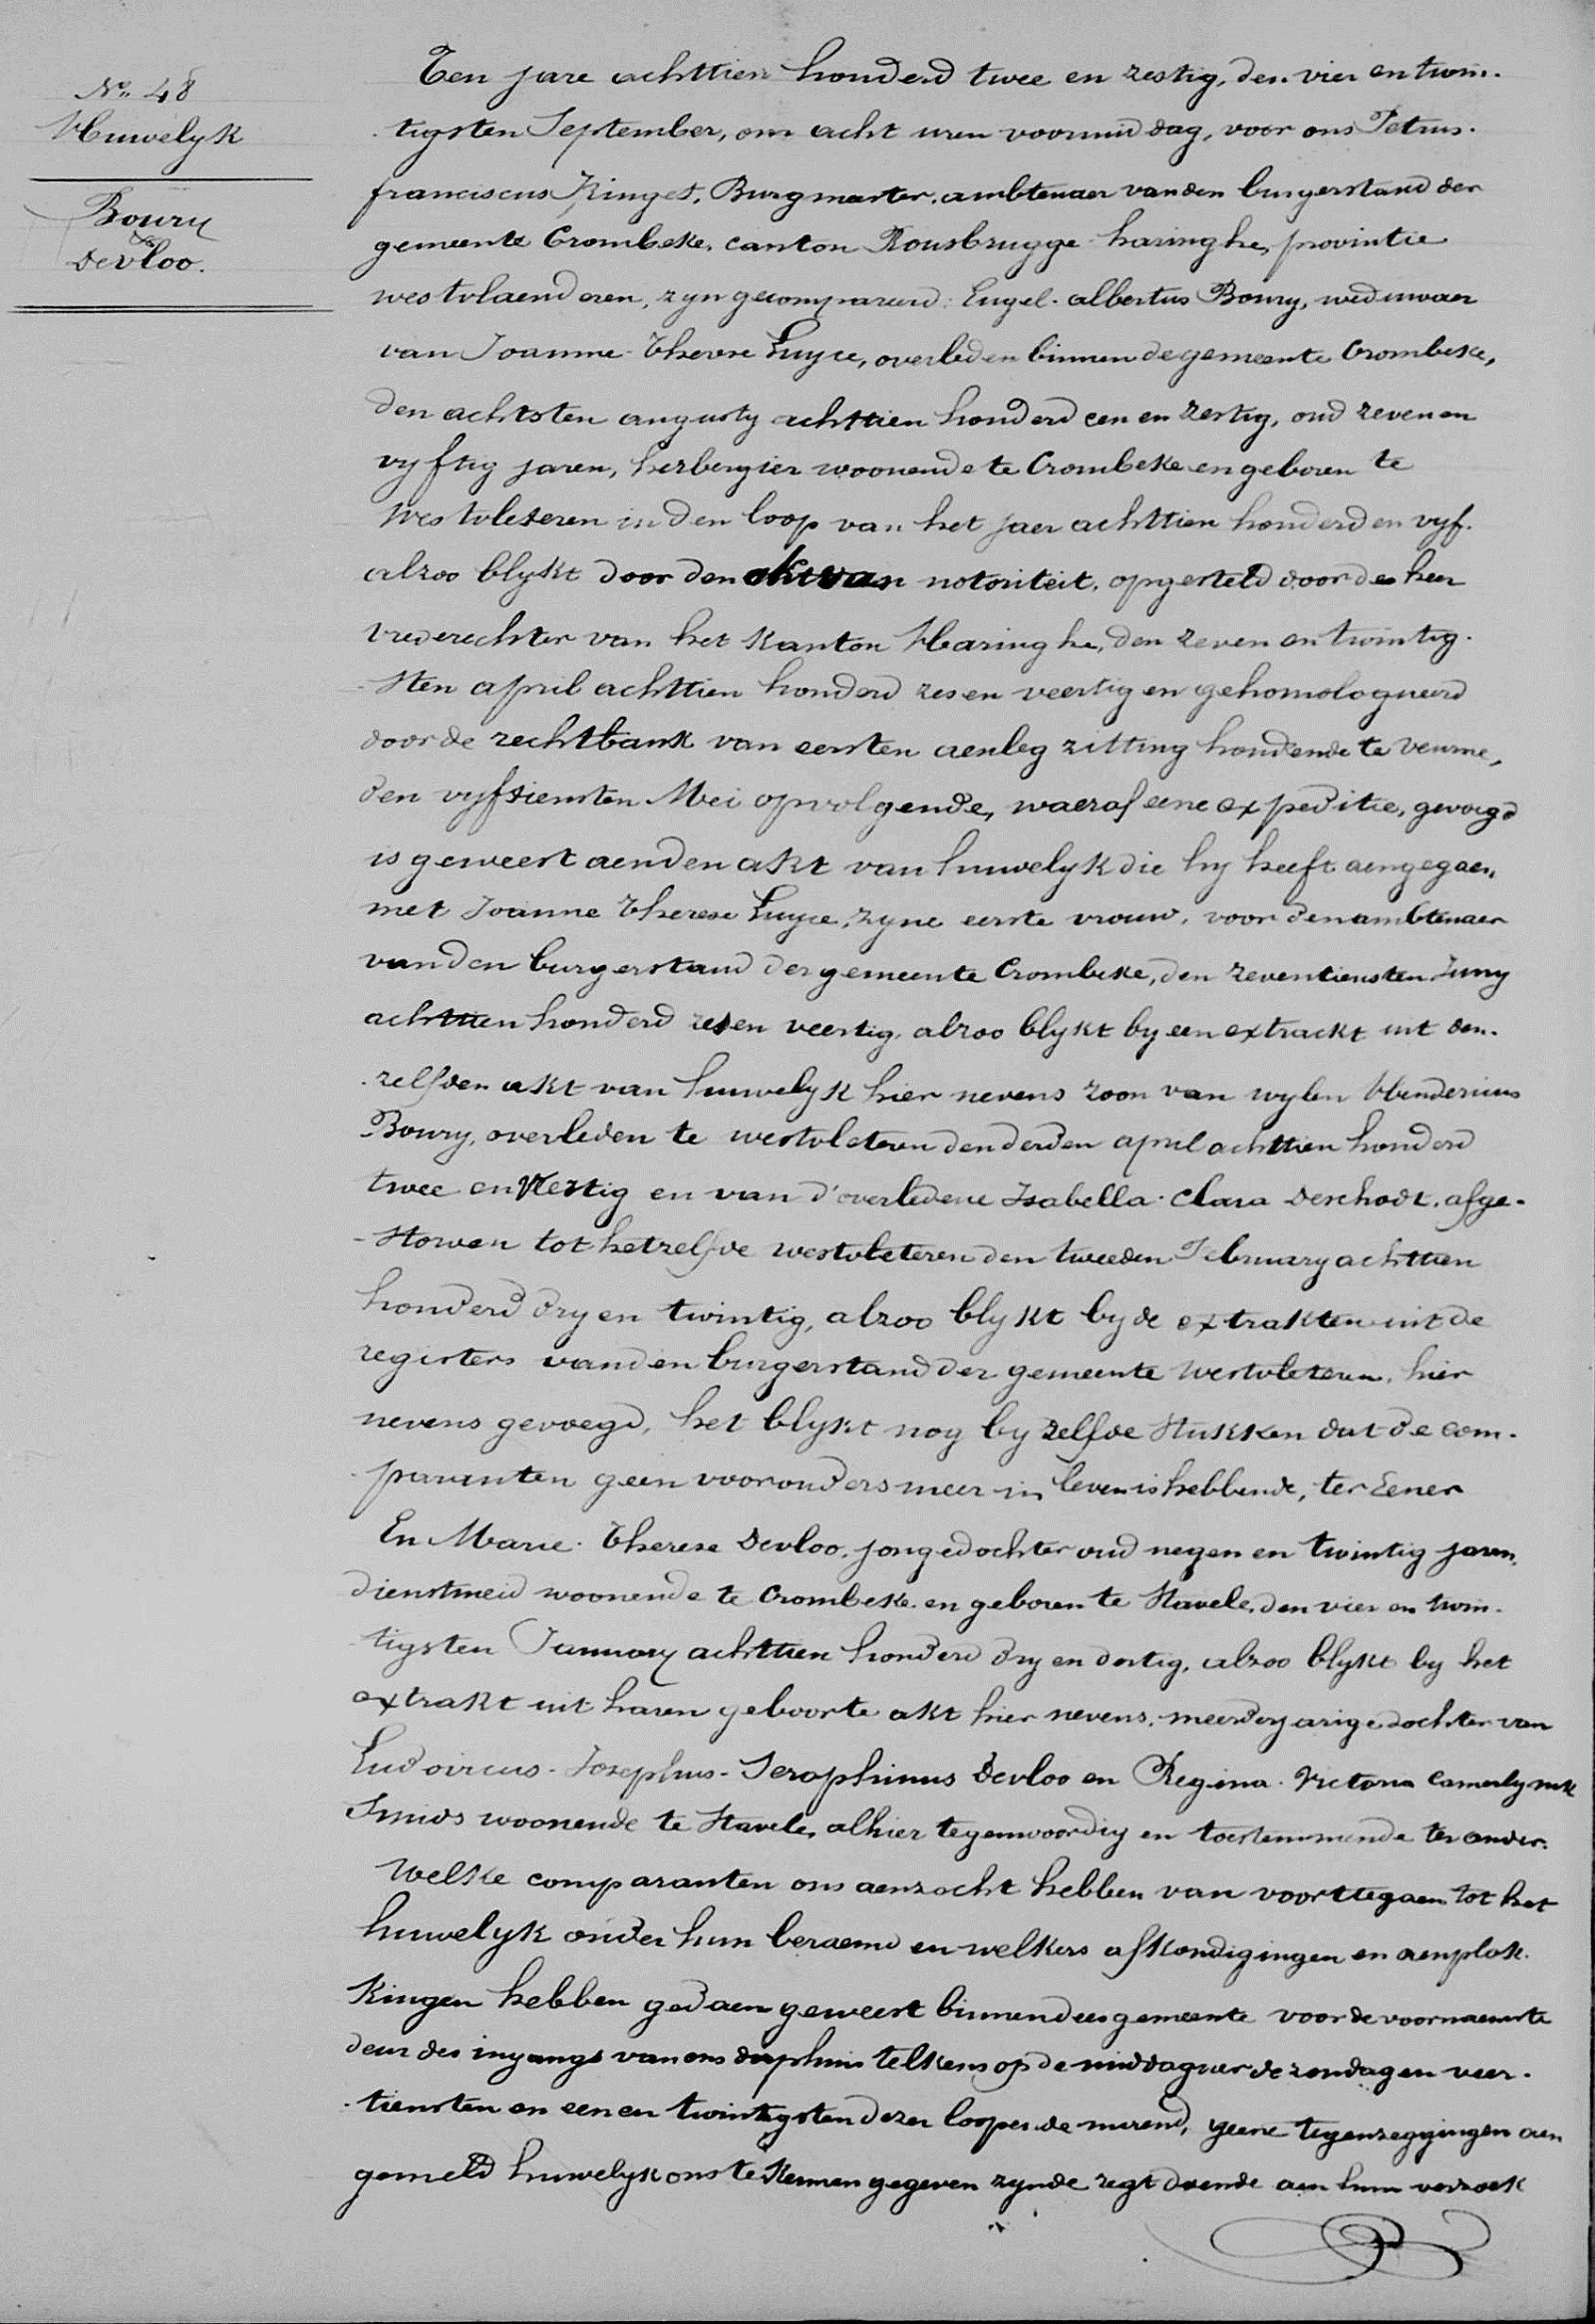 N° 48
Huwelyk
Boury
&
Devloo.
Ten jare achttien honderd twee en zestig, den vier en twin-
-tigsten September, om acht uren voormiddag, voor ons Petrus-
franciscus Ringet, Burgmeester, ambtenaer van den burgerstand der
gemeente Crombeke, canton Rousbrugge haringhe, provintie
westvlaenderen, zyn gecompareerd: Engel-albertus Boury, weduwaer
van Joanne-Therese Luyce, overleden binnen de gemeente Crombeke,
den achtsten augusty achttien honderd een en zestig, oud zeven en
vyftig jaren, herbergier woonende te Crombeke en geboren te
Westvleteren in den loop van het jaer achttien honderd en vyf.
alzoo blykt door den akt van notoriteit, opgesteld door de heer
vrederechter van het Kanton Haringhe, den zeven en twintig-
-sten april achttien honderd zes en veertig en gehomologueerd
door de rechtbank van eersten aenleg zitting houdende te veurne,
den vyftiensten Mei opvolgende, waeraf eene expeditie, gevoegd
is geweest aen den akt van huwelyk die hy heeft aengegaen,
met Joanne Therese Luyce, zyne eerste vrouw, voor den ambtenaer
van den burgerstand der gemeente Crombeke, den zeventiensten Juny
achttien honderd zes en veertig, alzoo blykt by een extrackt uit den-
-zelfden akt van huwelyk hier nevens zoon van wylen Hendericus
Boury, overleden te westvleteren den derden april achttien honderd
twee en veertig en van d'overledene Isabella-Clara Deschodt, afge-
-storven tot hetzelfde westvleteren den tweeden February achttien
honderd dry en twintig, alzoo blykt by de extrakten uit de
registers van den burgerstand der gemeente Westvleteren, hier
nevens gevoegd, het blykt nog by zelfde stukken dat de com-
-paranten geen voorouders meer in leven is hebbende, ter Eener
En Marie-Therese Devloo, jongedochter oud negen en twintig jaren,
dienstmeid woonende te Crombeke en geboren te Stavele, den vier en twin-
tigsten January achttien honderd dry en dertig, alzoo blykt by het
extrakt uit haren geboorte akt hier nevens, meerderjarige dochter van
Ludovicus-Josephus-Seraphinus Devloo en Regina-Victoria Camerlynck
Smids woonende te Stavele, alhier tegenwoordig en toestemmende ter ander.
Welke comparanten ons aenzocht hebben van voorttegaen tot het
huwelyk onder hun beraemd en welkers afkondigingen en aenplak-
kingen hebben gedaen geweest binnen dees gemeente voor de voornaemste
deur des ingangs van ons dorphuis telkens op de middaguer de zondagen veer-
-tiensten en een en twintigsten dezer loopende maend, geene tegenzeggingen aen
gemeld huwelyk ons te kennen gegeven zynde regt doende aen hun verzoek